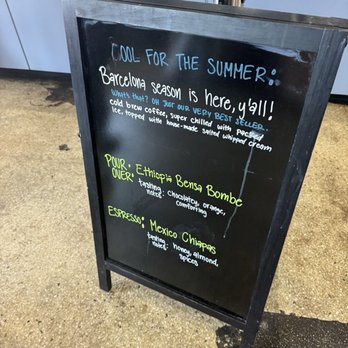 COOL FOR THE SUMMER:
Barcelona season is here, y'all!
What's that? OH JUST OUR VERY BEST SELLER.
cold brew coffee, super chilled with packed
ice, topped with house-made salted whipped cream
POUR OVER: Ethiopia Bensa Bombe
tasting notes: chocolatey, orange,
comforting
ESPRESSO: Mexico Chiapas
tasting notes: honey, almond,
spices